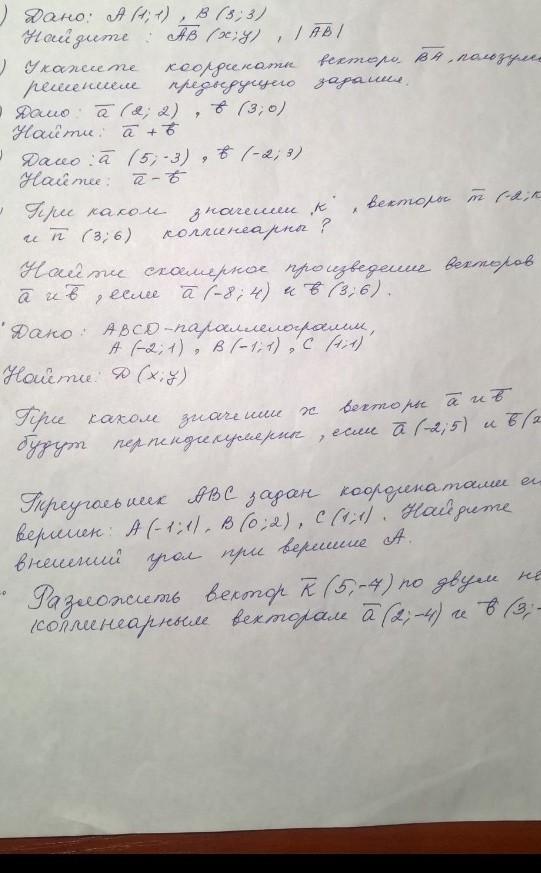 ) Дано: А(1;1) , В (3;3)
Найдите : АВ (х;у) , |АВ|
) Укажите координаты вектора ВА, пользуясь
решением предыдущего задания.
) Дано: а (2; 2) , в (3;0)
Найти: а + в
) Дано: а (5;-3) , в (-2;3)
Найти: а - в
При каком значении „к“, векторы m (-2;к
и n (3;6) коллинеарны?
Найти скалярное произведение векторов
а и в , если а (-8;4) и в (3;6).
Дано: ABCD-параллелограмм,
А (-2;1) , В(-1;1) , С (1;1)
Найти: D (х;у)
При каком значении х векторы а и в
будут перпендикулярны, если а (-2;5) и в (х
Треугольник АВС задан координатами
вершин: А(-1;1), В(0;2), С(1;1). Найдите
внешний угол при вершине А.
Разложить вектор к (5;-4) по двум не
коллинеарным векторам а (2;-4) и в (3;-